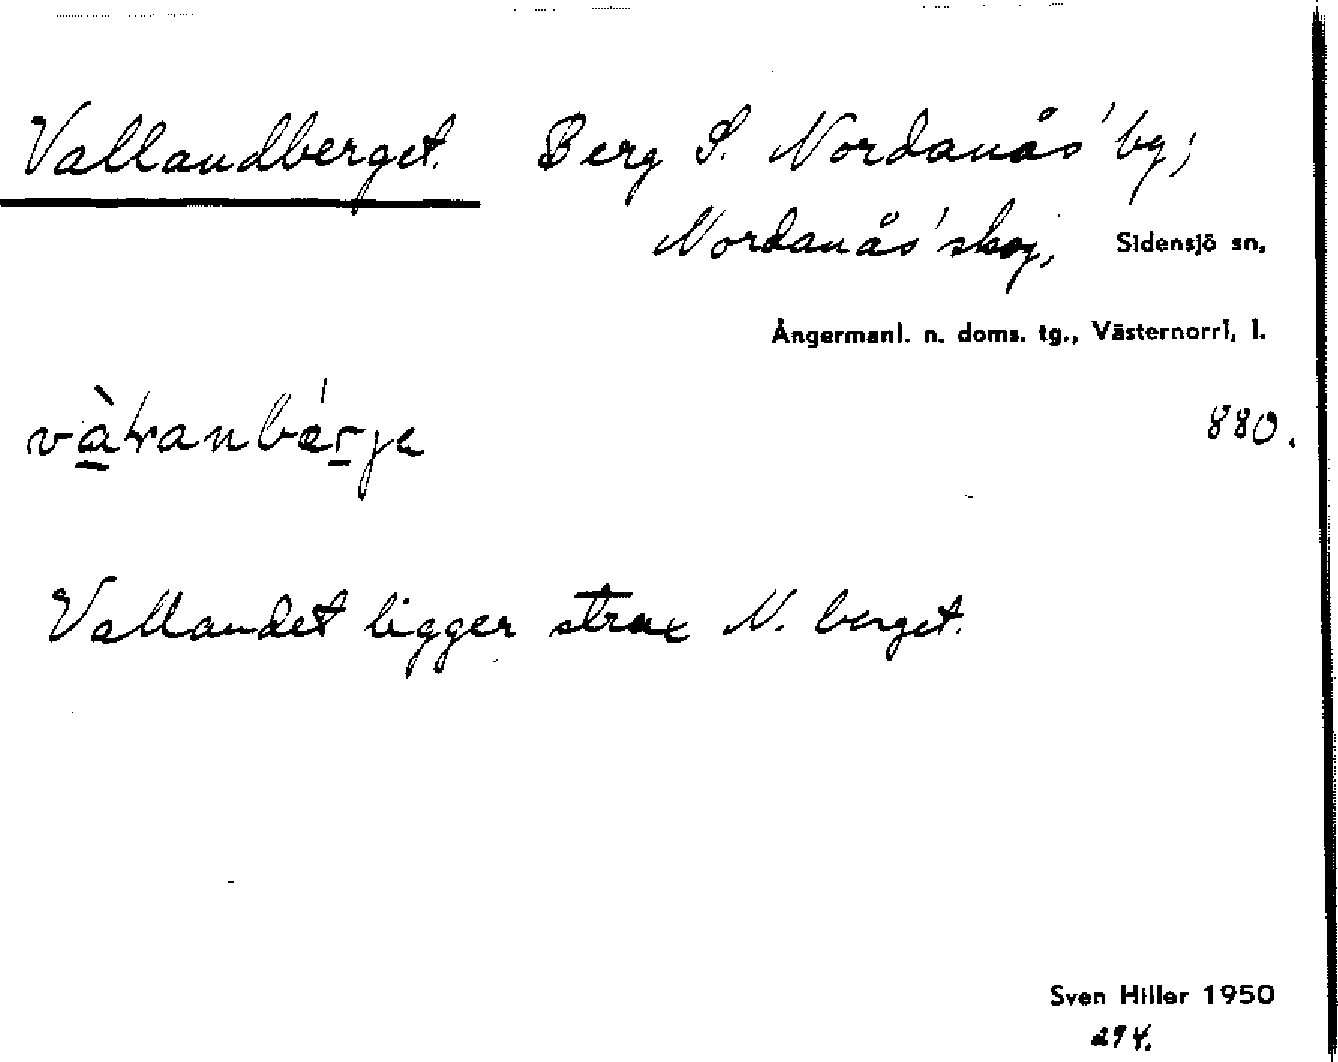 Vallandberget. Berg S. Nordanås' by;
Nordanås' skog, Sidensjö sn.
Ångermanl. n. doms. tg., Västernorrl. l.
880.
Vallandet ligger strax N. berget.
Sven Hiller 1950
294.